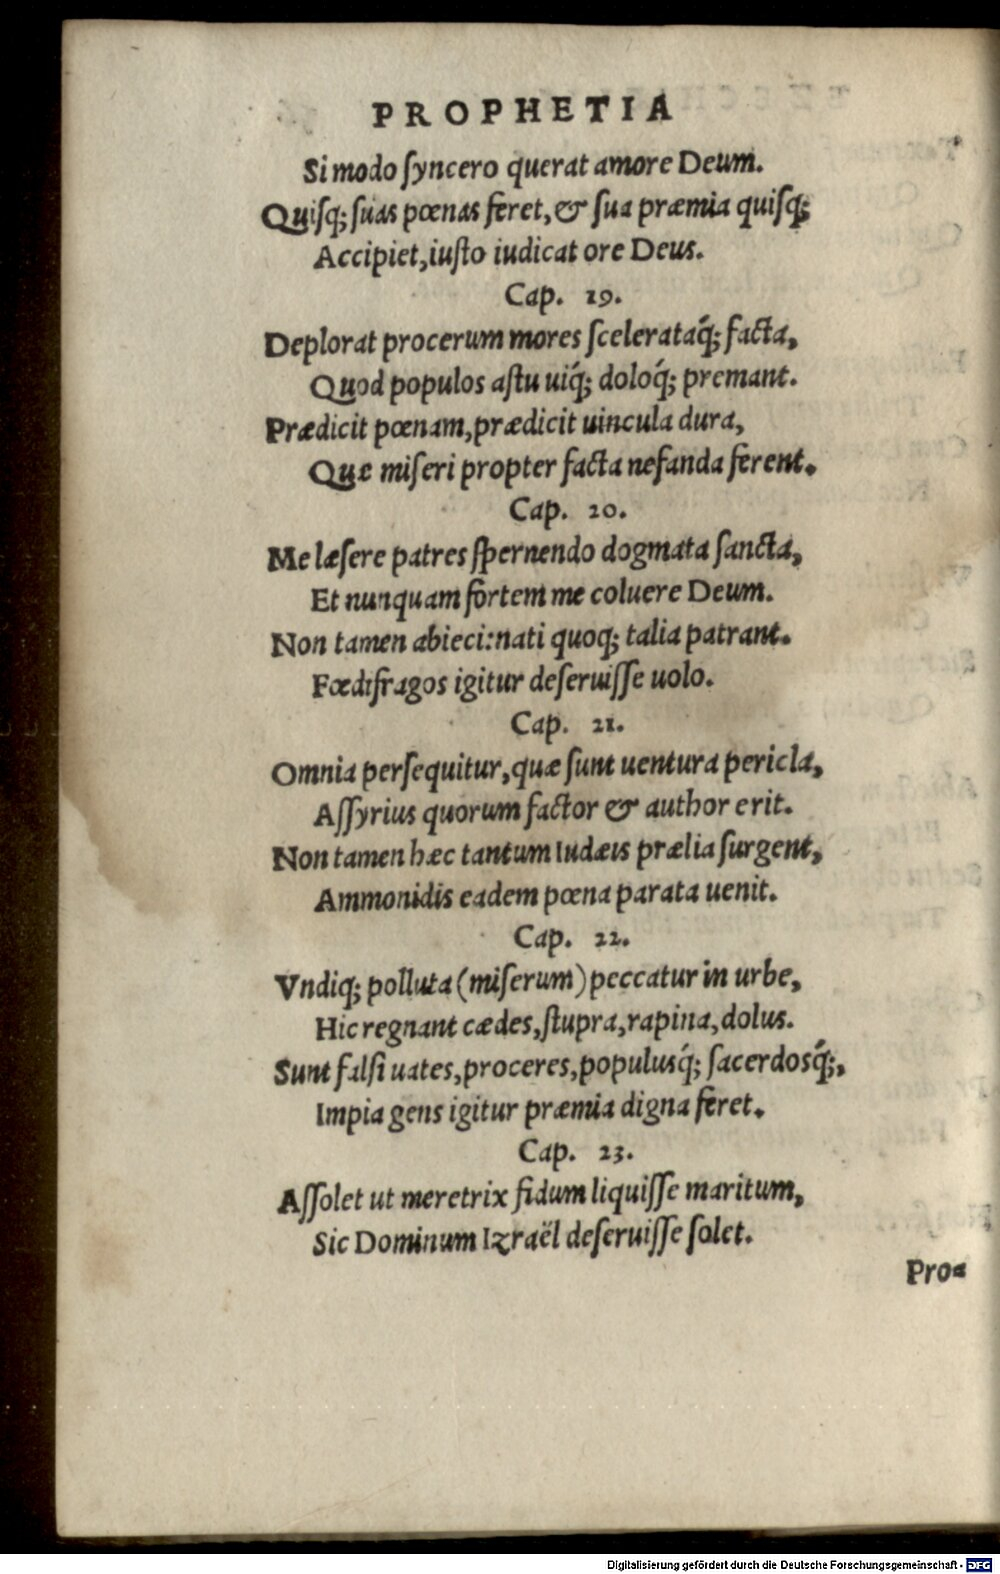 PROPHETIA
Si modo ſyncero quærat amore Deum.
Quiſq; ſuas pœnas feret, & ſua præmia quiſq;
Accipiet, iuſto iudicat ore Deus.
Cap. 19.
Deplorat procerum mores ſcelerataq́; facta,
Quod populos aſtu uiq́; doloq́; premant.
Prædicit pœnam, prædicit uincula dura,
Quæ miſeri propter facta nefanda ferent.
Cap. 20.
Me læſere patres ſpernendo dogmata ſancta,
Et nunquam fortem me coluere Deum.
Non tamen abieci: nati quoq; talia patrant.
Fœdifragos igitur deſeruiſſe uolo.
Cap. 21.
Omnia perſequitur, quæ ſunt uentura pericla,
Aſſyrius quorum factor & author erit.
Non tamen hæc tantum Iudæis prælia ſurgent,
Ammonidis eadem pœna parata uenit.
Cap. 22.
Vndiq; polluta (miſerum) peccatur in urbe,
Hic regnant cædes, ſtupra, rapina, dolus.
Sunt falſi uates, proceres, populusq́; ſacerdosq́;,
Impia gens igitur præmia digna feret.
Cap. 23.
Aſſolet ut meretrix fidum liquiſſe maritum,
Sic Dominum Izraël deſeruiſſe ſolet.
Pro-
Digitalisierung gefördert durch die Deutsche Forschungsgemeinschaft - DFG